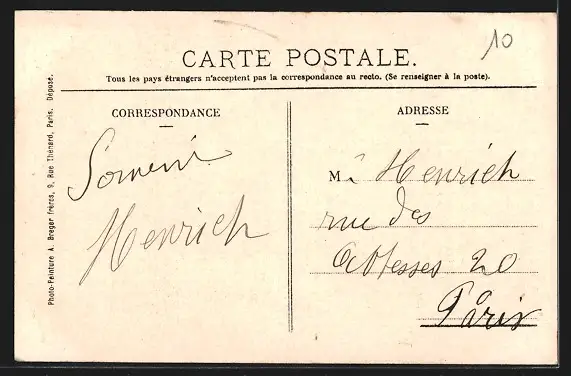 10
CARTE POSTALE.
Tous les pays étrangers n'acceptent pas la correspondance au recto. (Se renseigner à la poste).
CORRESPONDANCE
Henrich
ADRESSE
M. Henrich
rue des
20
Paris
Photo-Peinture A. Breger frères, 9, Rue Thénard, Paris. Déposé.